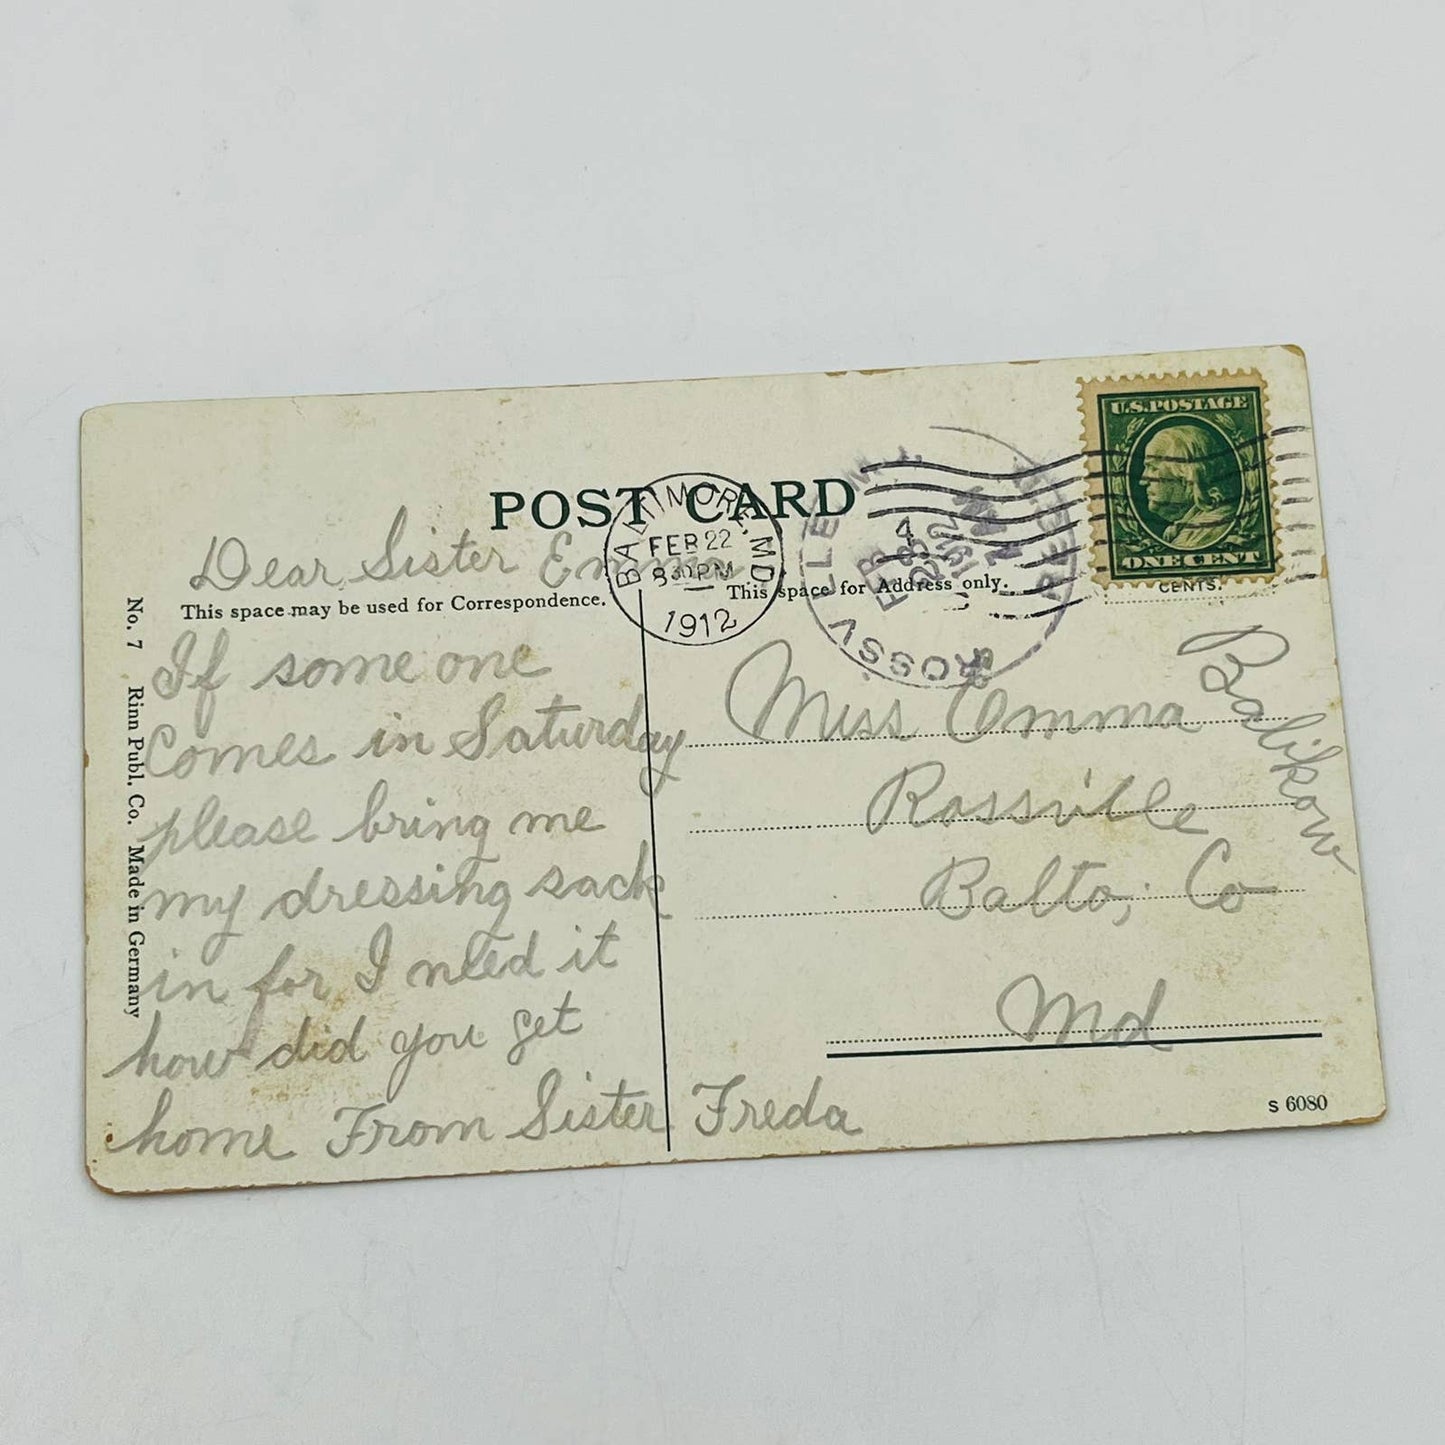 POST CARD
BALTIMORE, MD
FEB 22
830 PM
1912
U.S. POSTAGE
ONE CENT
CENTS.
Dear Sister Emma
This space may be used for Correspondence.
This space for Address only.
If some one
Comes in Saturday
please bring me
my dressing sack
in for I need it
how did you get
home From Sister Freda
Miss Emma
Balikow
Rossville
Balto, Co
Md
No. 7 Rinn Publ. Co. Made in Germany
S 6080